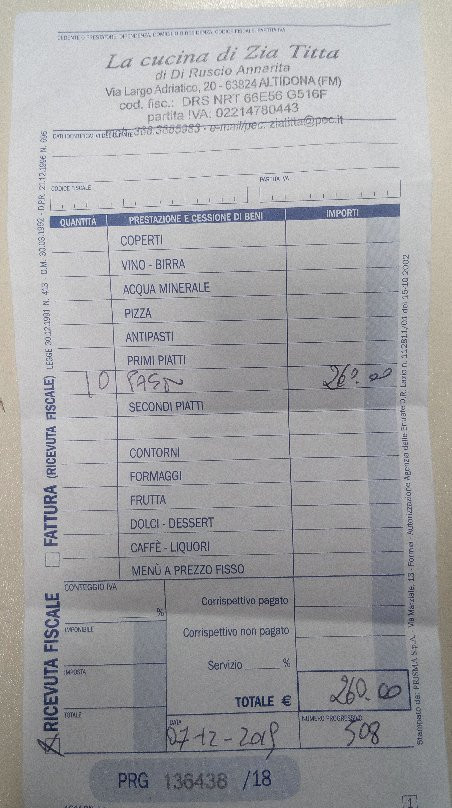 CEDENTE O PRESTATORE, DIPENDENZA, DOMICILIO O RESIDENZA, CODICE FISCALE, PARTITA IVA
La cucina di Zia Titta
di Di Ruscio Annarita
Via Largo Adriatico, 20 - 63824 ALTIDONA (FM)
cod. fisc.: DRS NRT 66E56 G516F
partita IVA: 02214780443
DATI IDENTIFICATIVI DEL CLIENTE
CODICE FISCALE
PARTITA IVA
QUANTITÀ PRESTAZIONE E CESSIONE DI BENI IMPORTI
COPERTI
VINO - BIRRA
ACQUA MINERALE
PIZZA
ANTIPASTI
PRIMI PIATTI
10 260.00
SECONDI PIATTI
CONTORNI
FORMAGGI
FRUTTA
DOLCI - DESSERT
CAFFÈ - LIQUORI
MENÙ A PREZZO FISSO
CONTEGGIO IVA
%
IMPONIBILE
IMPOSTA
TOTALE
Corrispettivo pagato
Corrispettivo non pagato
Servizio %
TOTALE € 260.00
DATA
07-12-2019
NUMERO PROGRESSIVO
508
PRG 136438 /18
1
X RICEVUTA FISCALE FATTURA (RICEVUTA FISCALE) LEGGE 30.12.1991 N. 413 D.M. 30.03.1992 - D.P.R. 21.12.1996 N. 696
Stampato da: PRISMA S.p.A. - Via Marziale, 13 - Formia - Autorizzazione Agenzia delle Entrate D.R. Lazio n. 112811/01 del 15-10-2002